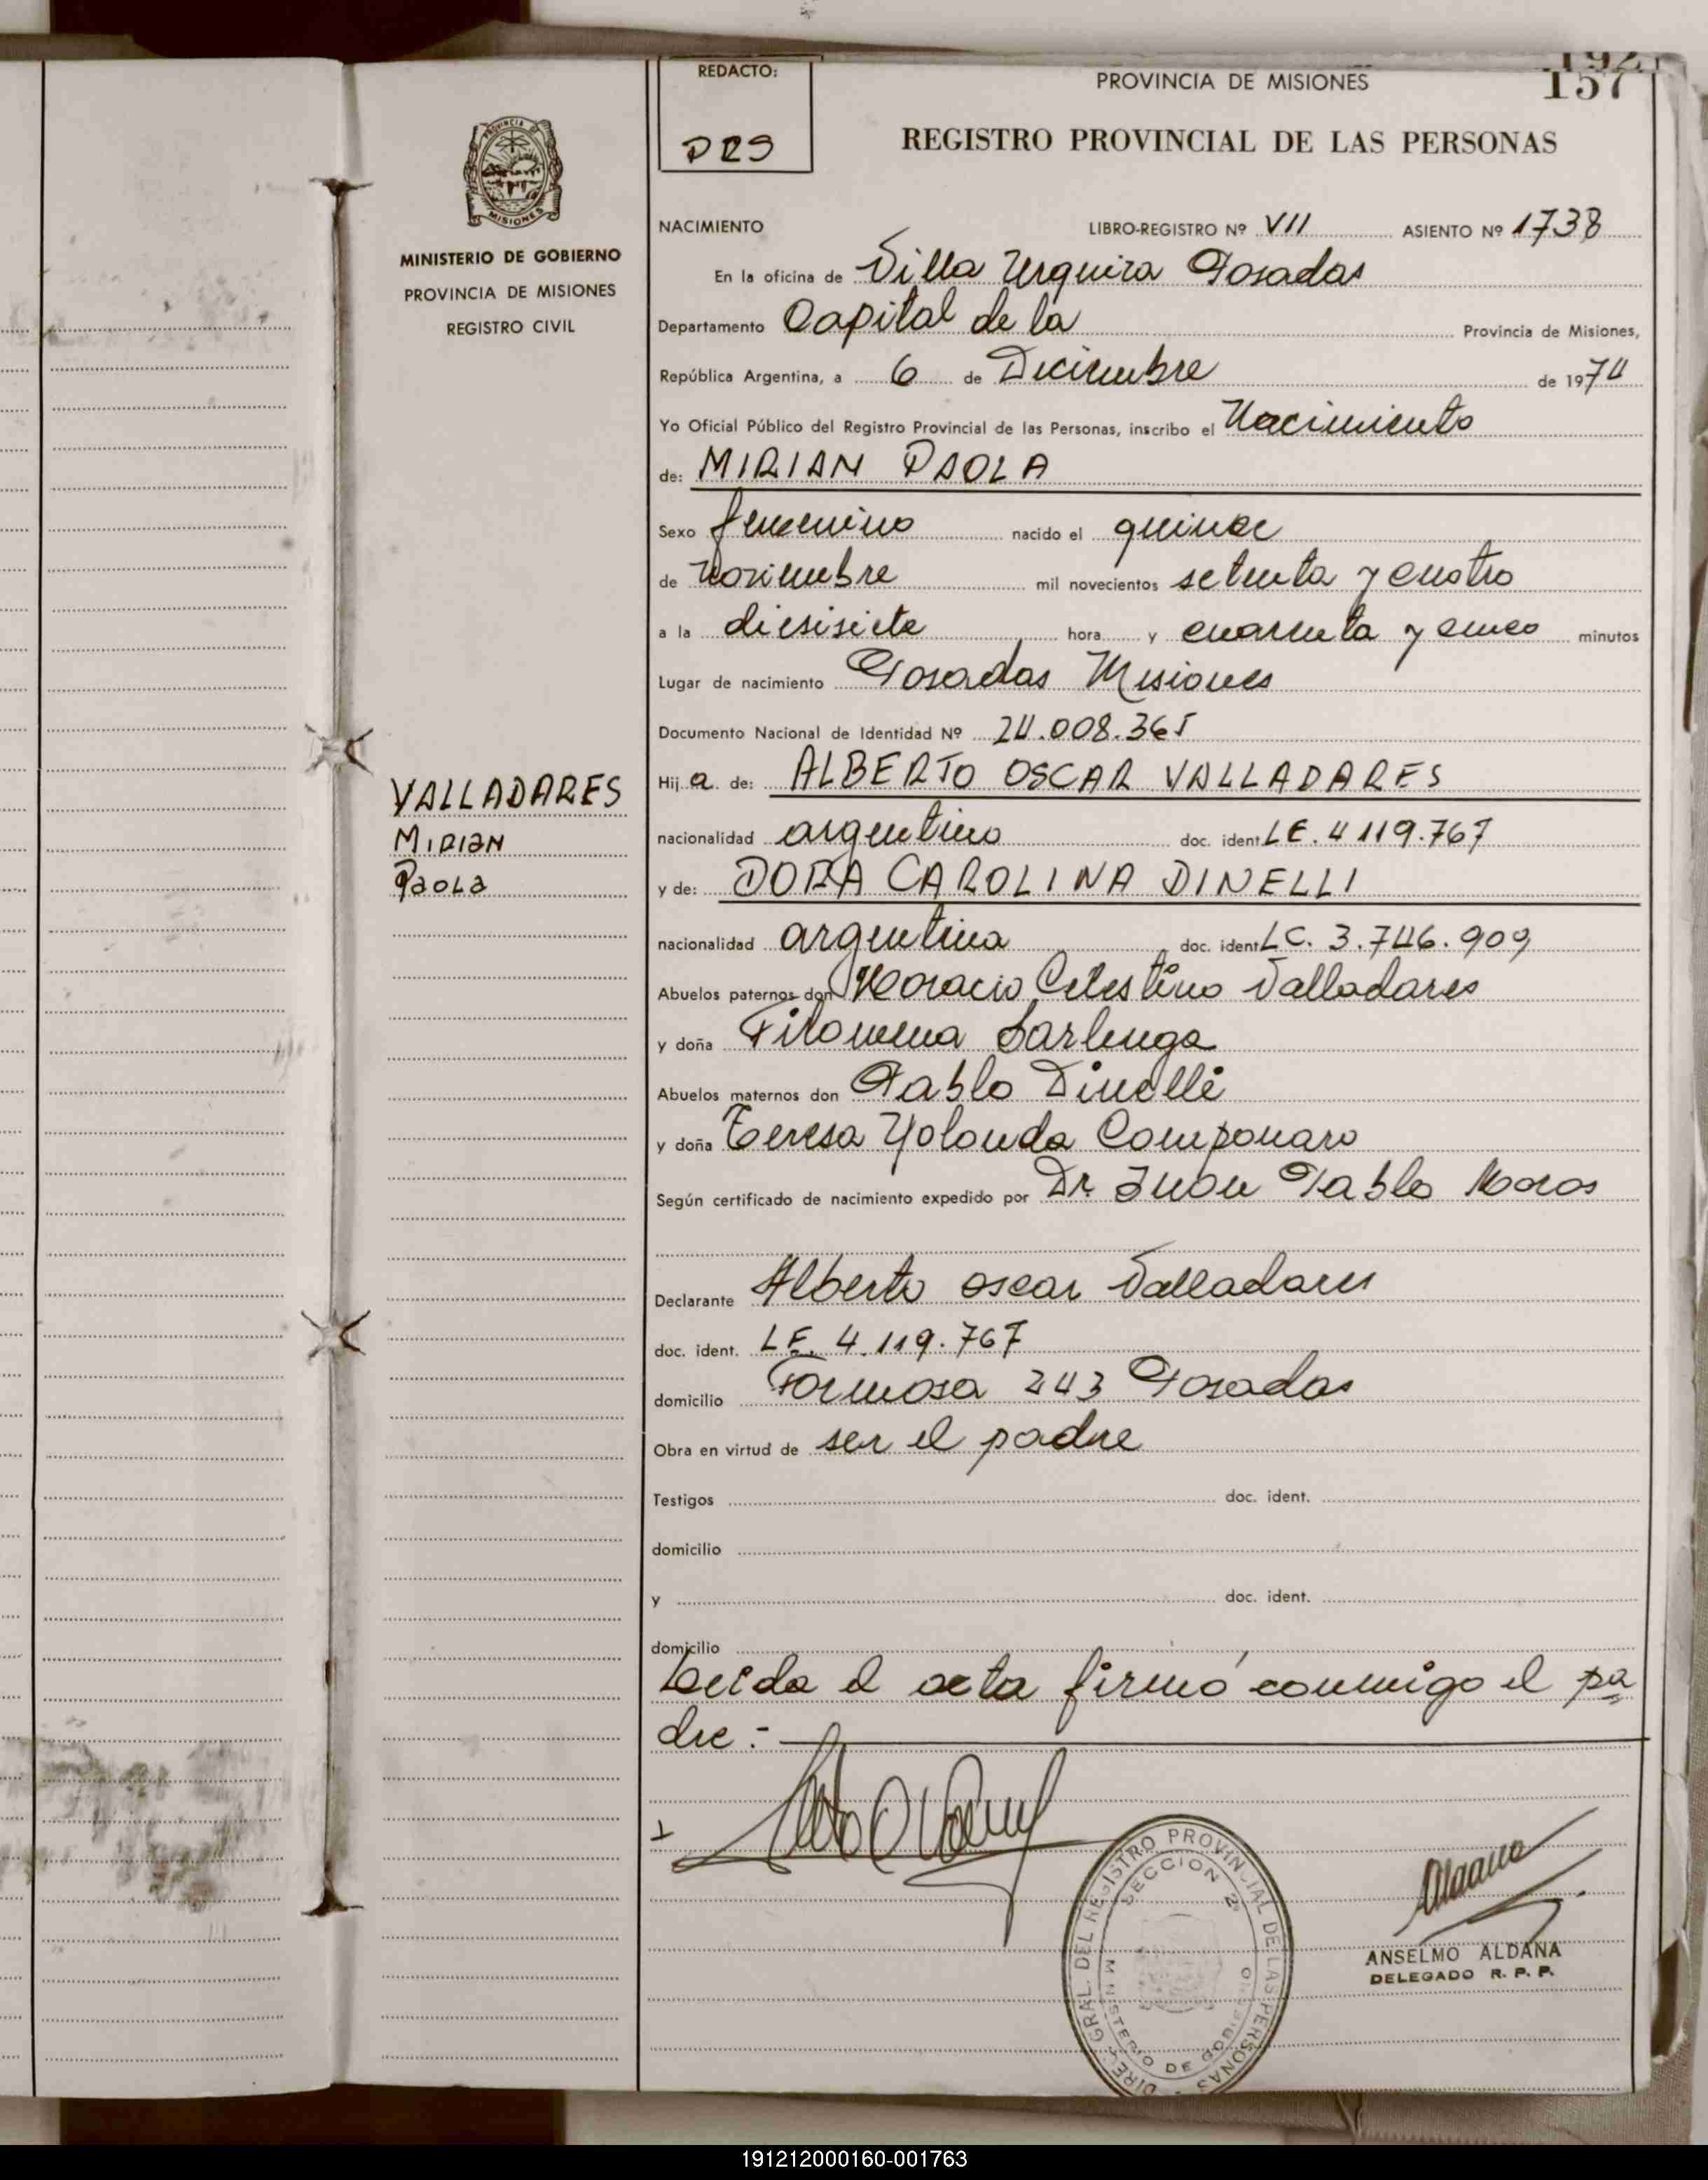 REDACTO:
DRS
192
157
PROVINCIA DE MISIONES
REGISTRO PROVINCIAL DE LAS PERSONAS
PROVINCIA DE
MISIONES
MINISTERIO DE GOBIERNO
PROVINCIA DE MISIONES
REGISTRO CIVIL
NACIMIENTO LIBRO-REGISTRO Nº VII ASIENTO Nº 1738
En la oficina de Villa Urquiza Posadas
Departamento Capital de la Provincia de Misiones,
República Argentina, a 6 de Diciembre de 1974
Yo Oficial Público del Registro Provincial de las Personas, inscribo el Nacimiento
de: MIRIAN PAOLA
Sexo femenino nacido el quince
de Noviembre mil novecientos setenta y cuatro
a la diesisiete hora y cuarenta y cinco minutos
Lugar de nacimiento Posadas Misiones
Documento Nacional de Identidad Nº 24.008.365
Hij a de: ALBERTO OSCAR VALLADARES
VALLADARES
MIRIAN
PAOLA
nacionalidad argentino doc. ident LE. 4 119.767
y de: DORA CAROLINA DINELLI
nacionalidad argentina doc. ident LC. 3.746.909
Abuelos paternos don Horacio Celestino Valladares
y doña Filomena Sarlenga
Abuelos maternos don Pablo Dinelli
y doña Teresa Yolanda Componaro
Según certificado de nacimiento expedido por Dr. Juan Pablo
Declarante Alberto Oscar Valladares
doc. ident. LE. 4.119.767
domicilio Formosa 243 Posadas
Obra en virtud de ser el padre
Testigos doc. ident.
domicilio
y doc. ident.
domicilio
Leida el acta firmó conmigo el pa
dre:-
DIREC. GRAL. DEL REGISTRO PROVINCIAL DE LAS PERSONAS
SECCION 2ª
MINISTERIO DE GOBIERNO
ANSELMO ALDANA
DELEGADO R. P. P.
191212000160-001763